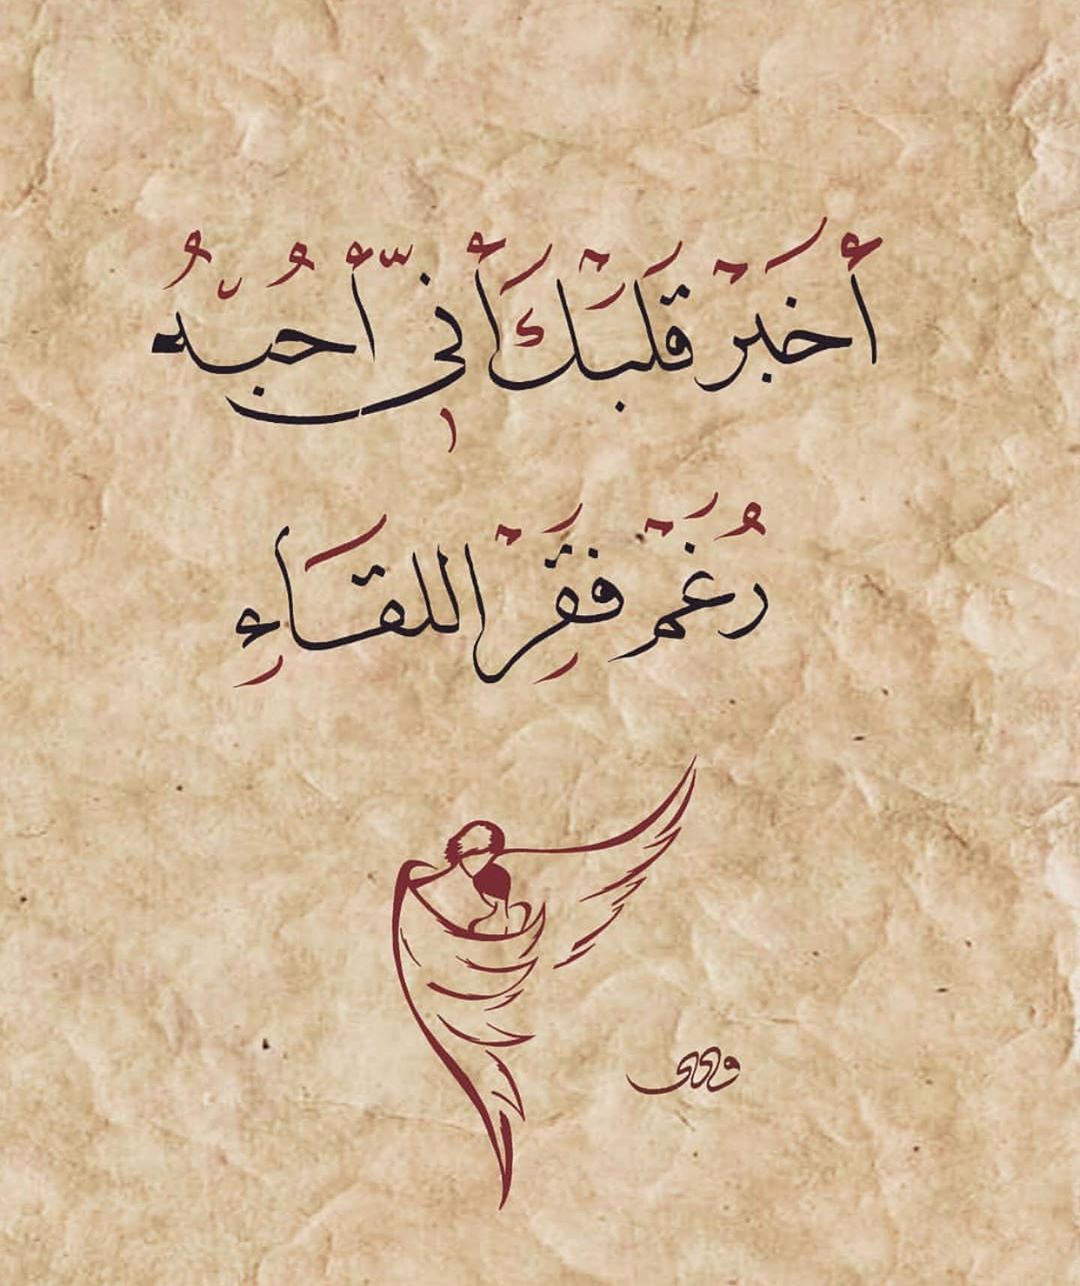 أَخبَرْ قَلبَْكَ أَنّي أُحُبّهُ
رُغَمْ فَقْرِ اللقَاءِ